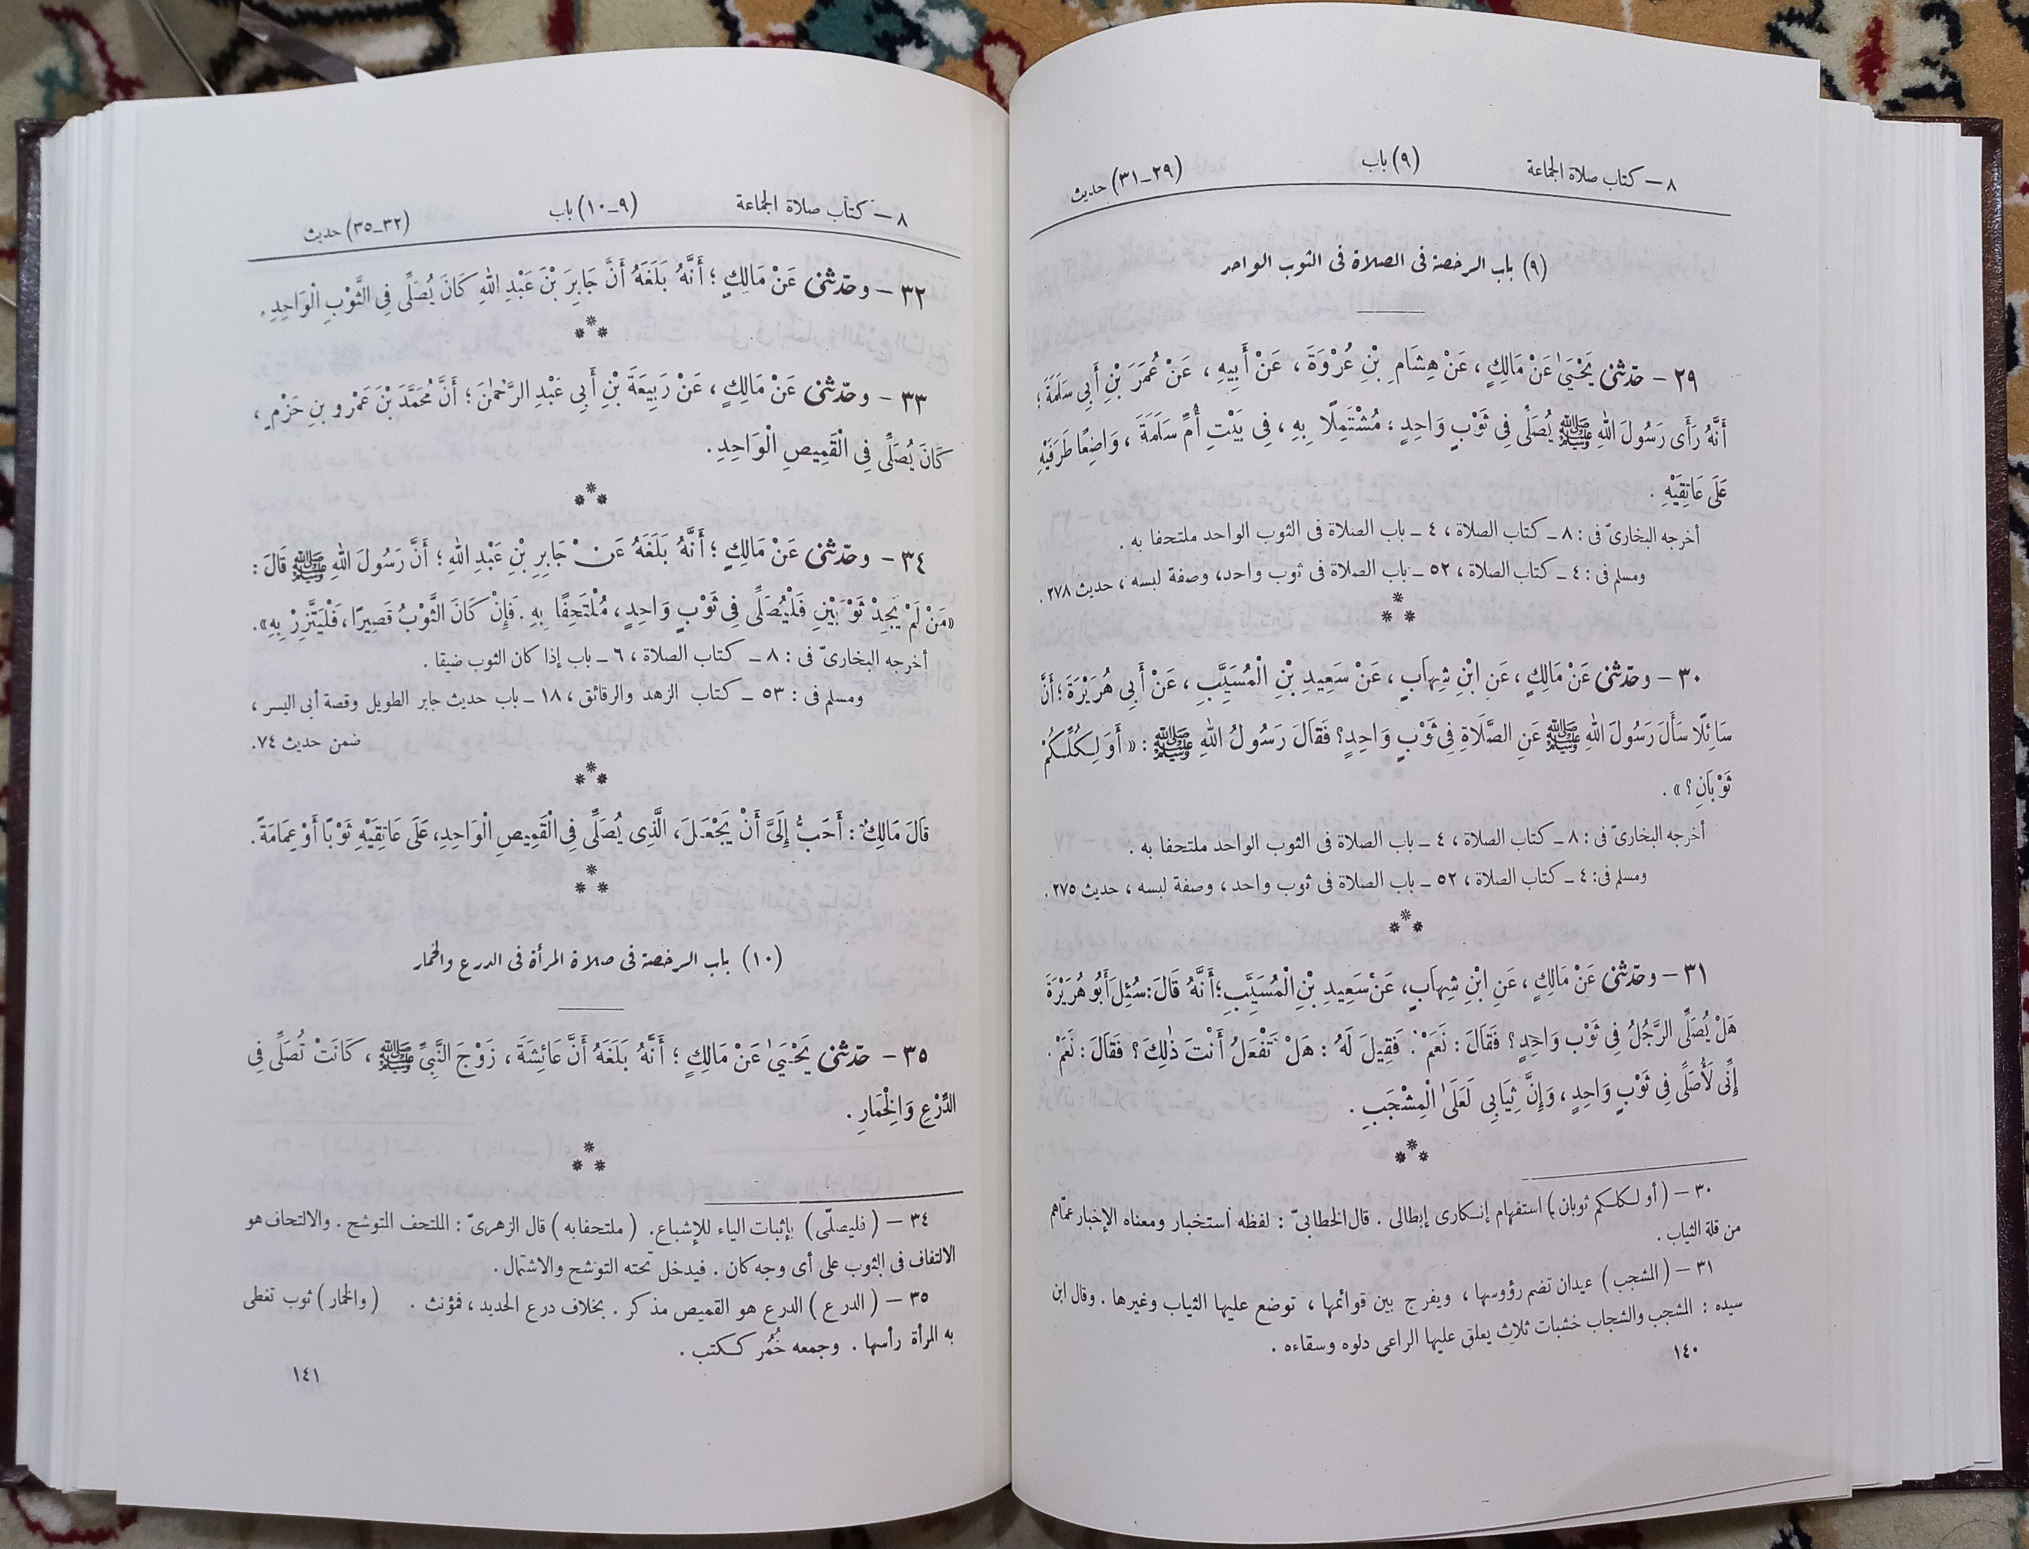 ٨ – كتاب صلاة الجماعة (٩) باب (٢٩–٣١) حديث
(٩) باب الرخصة فى الصلاة فى الثوب الواحد
٢٩ – حدّثنى يَحْيَىٰ عَنْ مَالِكٍ ، عَنْ هِشَامِ بْنِ عُرْوَةَ ، عَنْ أَبِيهِ ، عَنْ عُمَرَ بْنِ أَبِى سَلَمَةَ ؛
أَنَّهُ رَأَى رَسُولَ اللهِ ﷺ يُصَلِّى فِى ثَوْبٍ وَاحِدٍ ، مُشْتَمِلًا بِهِ ، فِى بَيْتِ أُمِّ سَلَمَةَ ، وَاضِعًا طَرَفَيْهِ
عَلَى عَاتِقَيْهِ .
أخرجه البخارىّ فى : ٨ ـ كتاب الصلاة ، ٤ ـ باب الصلاة فى الثوب الواحد ملتحفا به .
ومسلم فى : ٤ ـ كتاب الصلاة ، ٥٢ ـ باب الصلاة فى ثوب واحد، وصفة لبسه ، حديث ٢٧٨ .
٣٠ – وحدّثنى عَنْ مَالِكٍ ، عَنِ ابْنِ شِهَابٍ ، عَنْ سَعِيدِ بْنِ الْمُسَيَّبِ ، عَنْ أَبِى هُرَيْرَةَ ؛ أَنَّ
سَائِلًا سَأَلَ رَسُولَ اللهِ ﷺ عَنِ الصَّلَاةِ فِى ثَوْبٍ وَاحِدٍ؟ فَقَالَ رَسُولُ اللهِ ﷺ : « أَوَ لِكُلِّكُمْ
ثَوْبَانِ ؟ » .
أخرجه البخارىّ فى : ٨ ـ كتاب الصلاة ، ٤ ـ باب الصلاة فى الثوب الواحد ملتحفا به .
ومسلم فى: ٤ ـ كتاب الصلاة ، ٥٢ ـ باب الصلاة فى ثوب واحد ، وصفة لبسه ، حديث ٢٧٥ .
٣١ – وحدّثنى عَنْ مَالِكٍ ، عَنِ ابْنِ شِهَابٍ، عَنْ سَعِيدِ بْنِ الْمُسَيَّبِ؛ أَنَّهُ قَالَ: سُئِلَ أَبُو هُرَيْرَةَ
هَلْ يُصَلِّى الرَّجُلُ فِى ثَوْبٍ وَاحِدٍ؟ فَقَالَ : نَعَمْ . فَقِيلَ لَهُ : هَلْ تَفْعَلُ أَنْتَ ذٰلِكَ؟ فَقَالَ : نَعَمْ .
إِنِّى لَأُصَلِّى فِى ثَوْبٍ وَاحِدٍ ، وَإِنَّ ثِيَابِى لَعَلَىٰ الْمِشْجَبِ .
٣٠ – ( أو لكلكم ثوبان ) استفهام إنكارى إبطالى . قال الخطابىّ : لفظه استخبار ومعناه الإخبار عمّاهم
من قلة الثياب .
٣١ – ( المشجب ) عيدان تضم رؤوسها ، ويفرج بين قوائمها ، توضع عليها الثياب وغيرها . وقال ابن
سيده : المشجب والشجاب خشبات ثلاث يعلق عليها الراعى دلوه وسقاءه .
١٤٠
٨ – كتاب صلاة الجماعة (٩–١٠) باب (٣٢–٣٥) حديث
٣٢ – وحدّثنى عَنْ مَالِكٍ ؛ أَنَّهُ بَلَغَهُ أَنَّ جَابِرَ بْنَ عَبْدِ اللهِ كَانَ يُصَلِّى فِى الثَّوْبِ الْوَاحِدِ .
٣٣ – وحدّثنى عَنْ مَالِكٍ ، عَنْ رَبِيعَةَ بْنِ أَبِى عَبْدِ الرَّحْمٰنَ ؛ أَنَّ مُحَمَّدَ بْنَ عَمْرِو بنِ حَزْمٍ ،
كَانَ يُصَلِّى فِى الْقَمِيصِ الْوَاحِدِ .
٣٤ – وحدّثنى عَنْ مَالِكٍ ؛ أَنَّهُ بَلَغَهُ عَنْ جَابِرِ بْنِ عَبْدِ اللهِ ؛ أَنَّ رَسُولَ اللهِ ﷺ قَالَ :
«مَنْ لَمْ يَجِدْ ثَوْبَيْنِ فَلْيُصَلِّى فِى ثَوْبٍ وَاحِدٍ ، مُلْتَحِفًا بِهِ . فَإِنْ كَانَ الثَّوْبُ قَصِيرًا ، فَلْيَتَّزِرْ بِهِ».
أخرجه البخارىّ فى : ٨ ـ كتاب الصلاة ، ٦ ـ باب إذا كان الثوب ضيقا .
ومسلم فى : ٥٣ ـ كتاب الزهد والرقائق ، ١٨ ـ باب حديث جابر الطويل وقصة أبى اليسر ،
ضمن حديث ٧٤.
قَالَ مَالِكٌ : أَحَبُّ إِلَىَّ أَنْ يَجْعَلَ، الَّذِى يُصَلِّى فِى الْقَمِيصِ الْوَاحِدِ، عَلَى عَاتِقَيْهِ ثَوْبًا أَوْ عِمَامَةً .
(١٠) باب الرخصة فى صلاة المرأة فى الدرع والخمار
٣٥ – حدّثنى يَحْيَىٰ عَنْ مَالِكٍ ؛ أَنَّهُ بَلَغَهُ أَنَّ عَائِشَةَ ، زَوْجَ النَّبِىِّ ﷺ ، كَانَتْ تُصَلِّى فِى
الدِّرْعِ وَالْخِمَارِ .
٣٤ – ( فليصلّى ) بإثبات الياء للإشباع. ( ملتحفا به ) قال الزهرىّ : الملتحف المتوشح . والالتحاف هو
الالتفاف فى الثوب على أى وجه كان . فيدخل تحته التوشح والاشتمال .
٣٥ – ( الدرع ) الدرع هو القميص مذكر . بخلاف درع الحديد ، فمؤنث . ( والخمار ) ثوب تغطى
به المرأة رأسها . وجمعه خُمُر ككتب .
١٤١